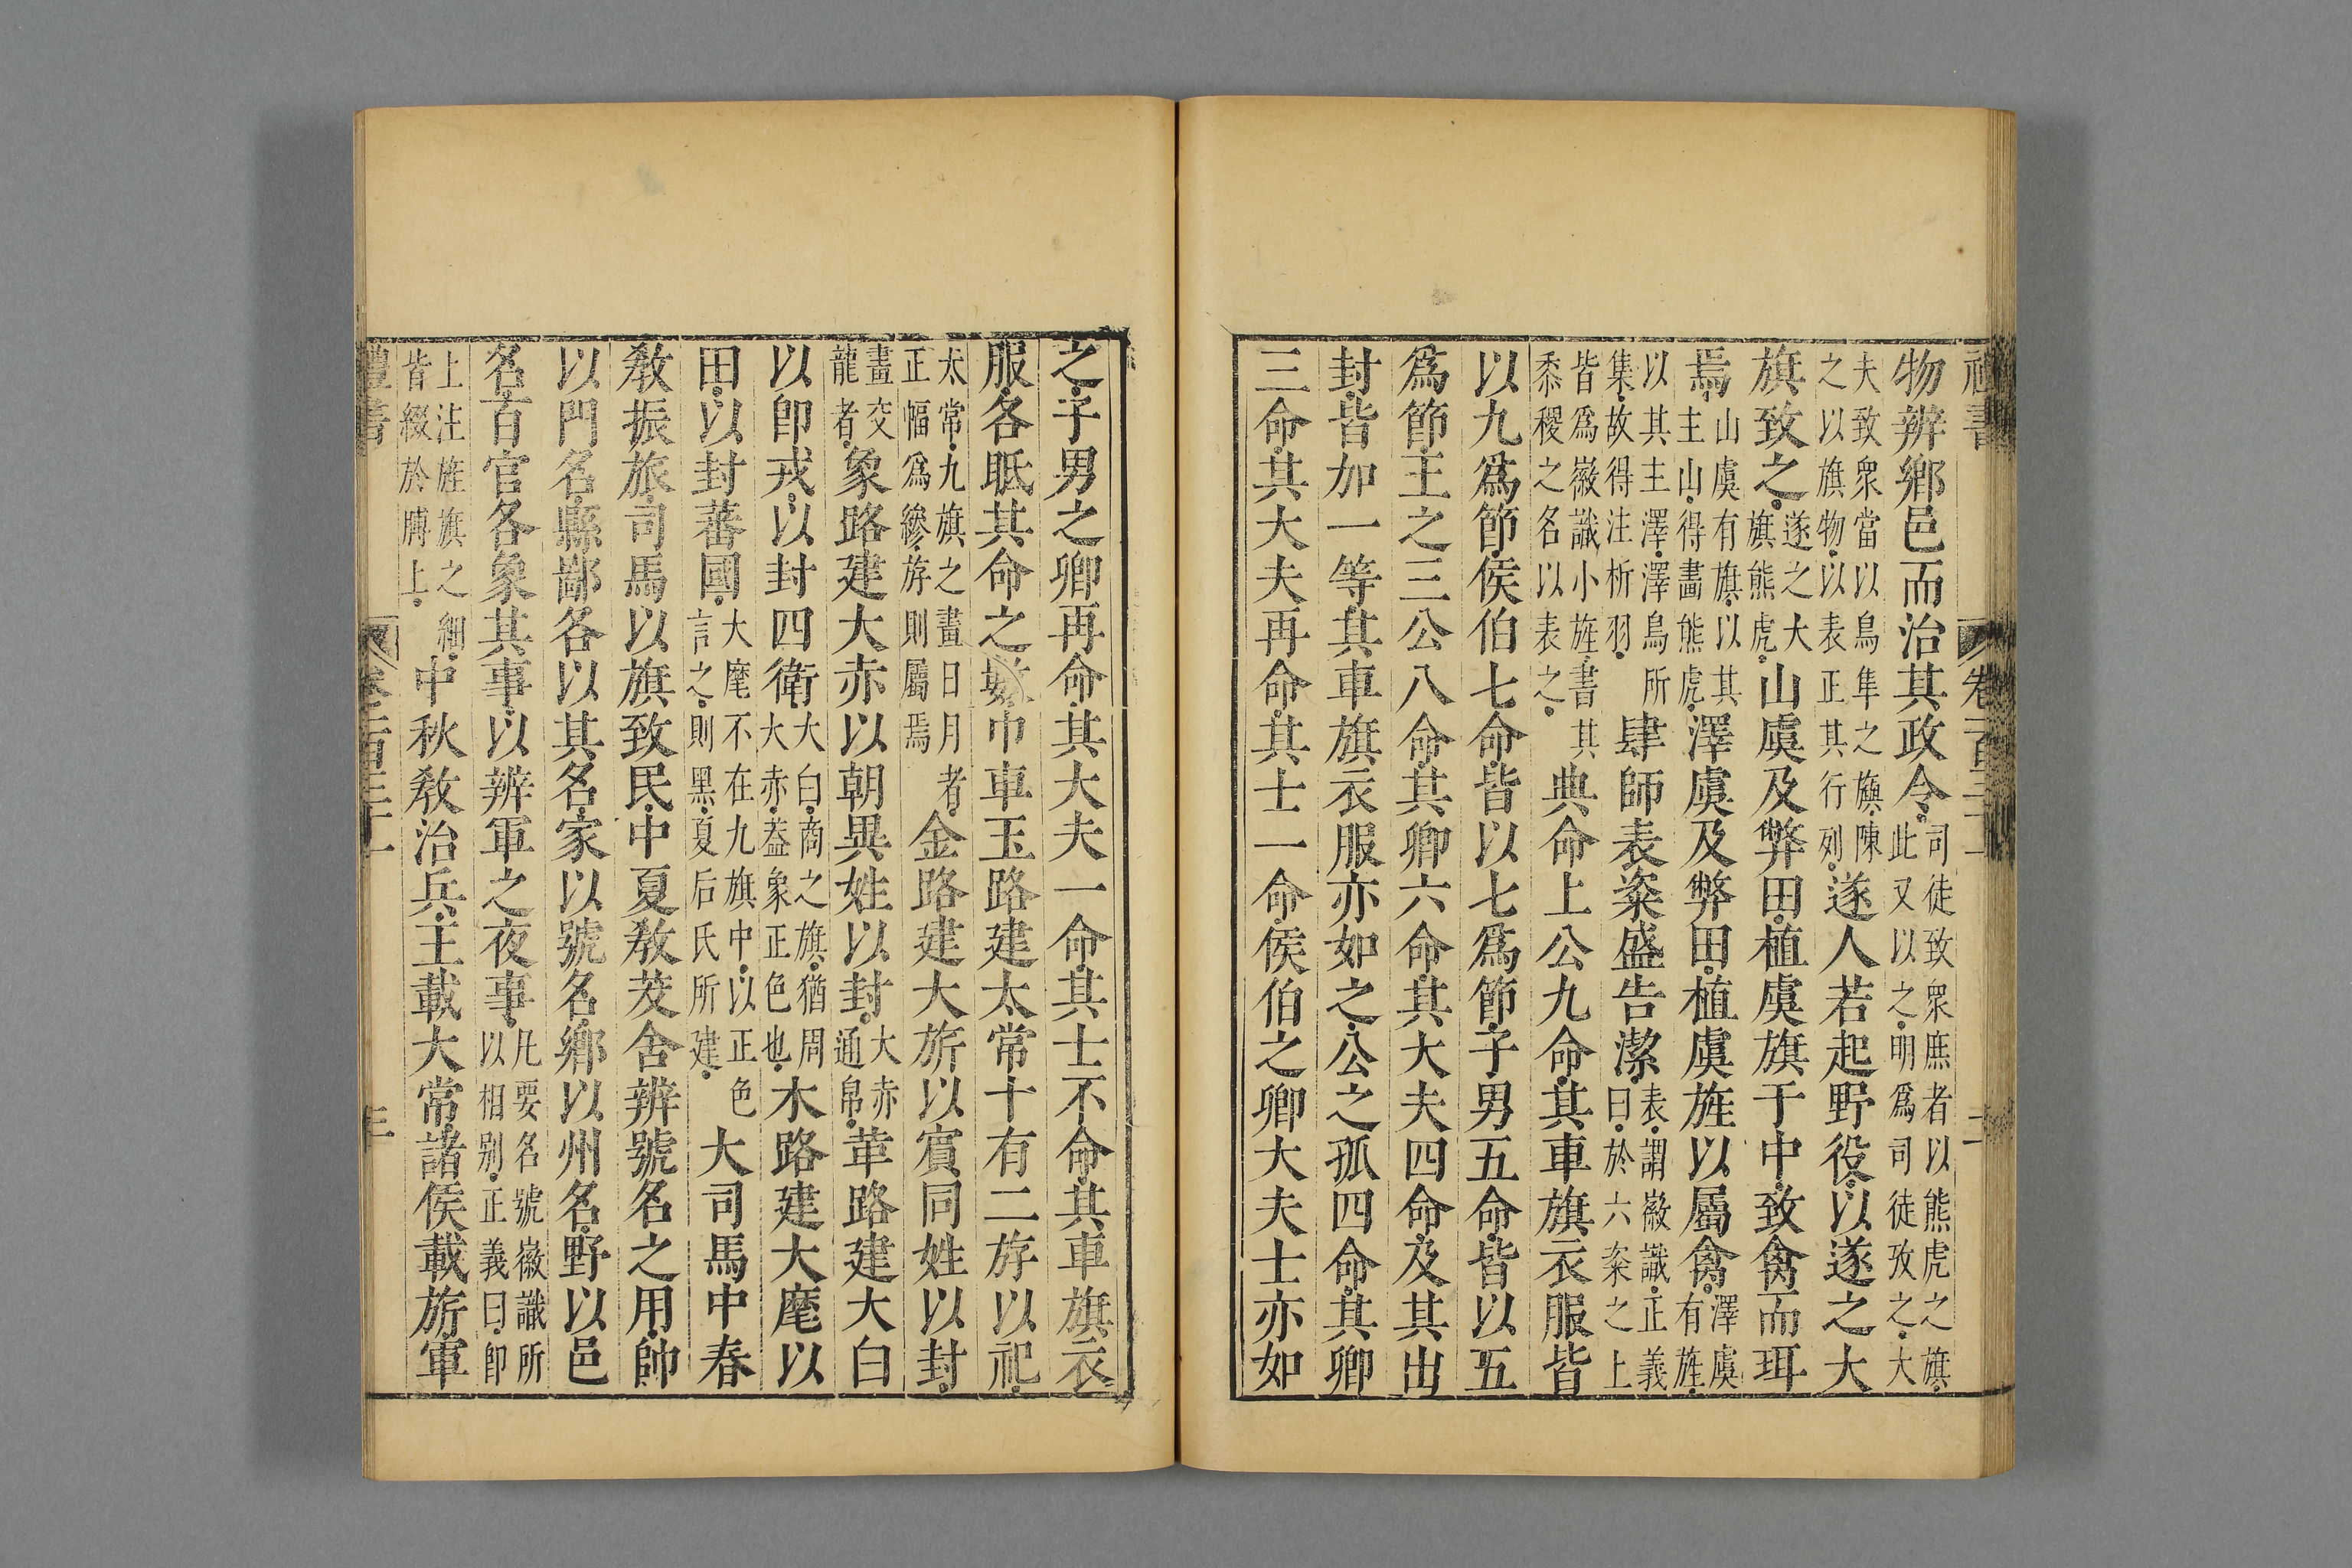 禮書 卷百三十一 二
物辨鄉邑而治其政令。司徒致衆庶者以熊虎之旗。此又以之。明爲司徒攷之。大
夫致衆當以鳥隼之旟。陳之以旗物。以表正其行列。遂人若起野役。以遂之大
旗致之。遂之大旗熊虎。山虞及弊田。植虞旗于中。致禽而珥
焉。山虞有旗。以其主山。得畫熊虎。澤虞及弊田。植虞旌以屬禽。澤虞有旌。
以其主澤。澤鳥所集。故得注析羽。肆師表粢盛告潔。表。謂徽識。正義曰。於六粢之上
皆爲徽識小旌。書其黍稷之名以表之。典命上公九命。其車旗衣服皆
以九爲節。侯伯七命。皆以七爲節。子男五命。皆以五
爲節。王之三公八命。其卿六命。其大夫四命。及其出
封。皆加一等。其車旗衣服亦如之。公之孤四命。其卿
三命。其大夫再命。其士一命。侯伯之卿大夫士亦如
之。子男之卿再命。其大夫一命。其士不命。其車旗衣
服。各眡其命之數。巾車玉路建太常十有二斿以祀。
太常。九旗之畫日月者。正幅爲縿。斿則屬焉金路建大旂以賓。同姓以封。
畫交龍者。象路建大赤以朝。異姓以封。大赤通帛。革路建大白
以卽戎。以封四衛。大白。商之旗。猶周大赤。蓋象正色也。木路建大麾以
田。以封蕃國。大麾不在九旗中。以正色言之。則黑。夏后氏所建。大司馬中春
敎振旅。司馬以旗致民。中夏敎茇舍。辨號名之用。帥
以門名。縣鄙各以其名。家以號名。鄉以州名。野以邑
名。百官各象其事。以辨軍之夜事。凡要名號徽識所以相别。正義曰。卽
上注旌旗之細。皆綴於膊上。中秋敎治兵。王載大常。諸侯載旂。軍
禮書 三